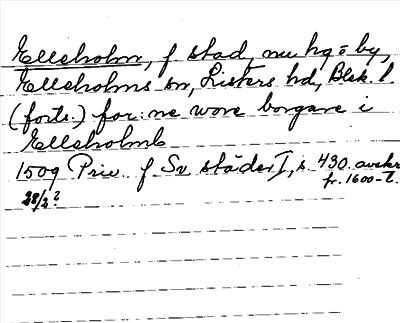 Elleholm, f stad, nu hg o by,
Elleholms sn, Listers hd, Blek. l.
(forts.) for: ne wore borgare i
Elleholmb
1509 Priv. f Sv städer I, s. 430 avskr
28/2? fr. 1600-t.